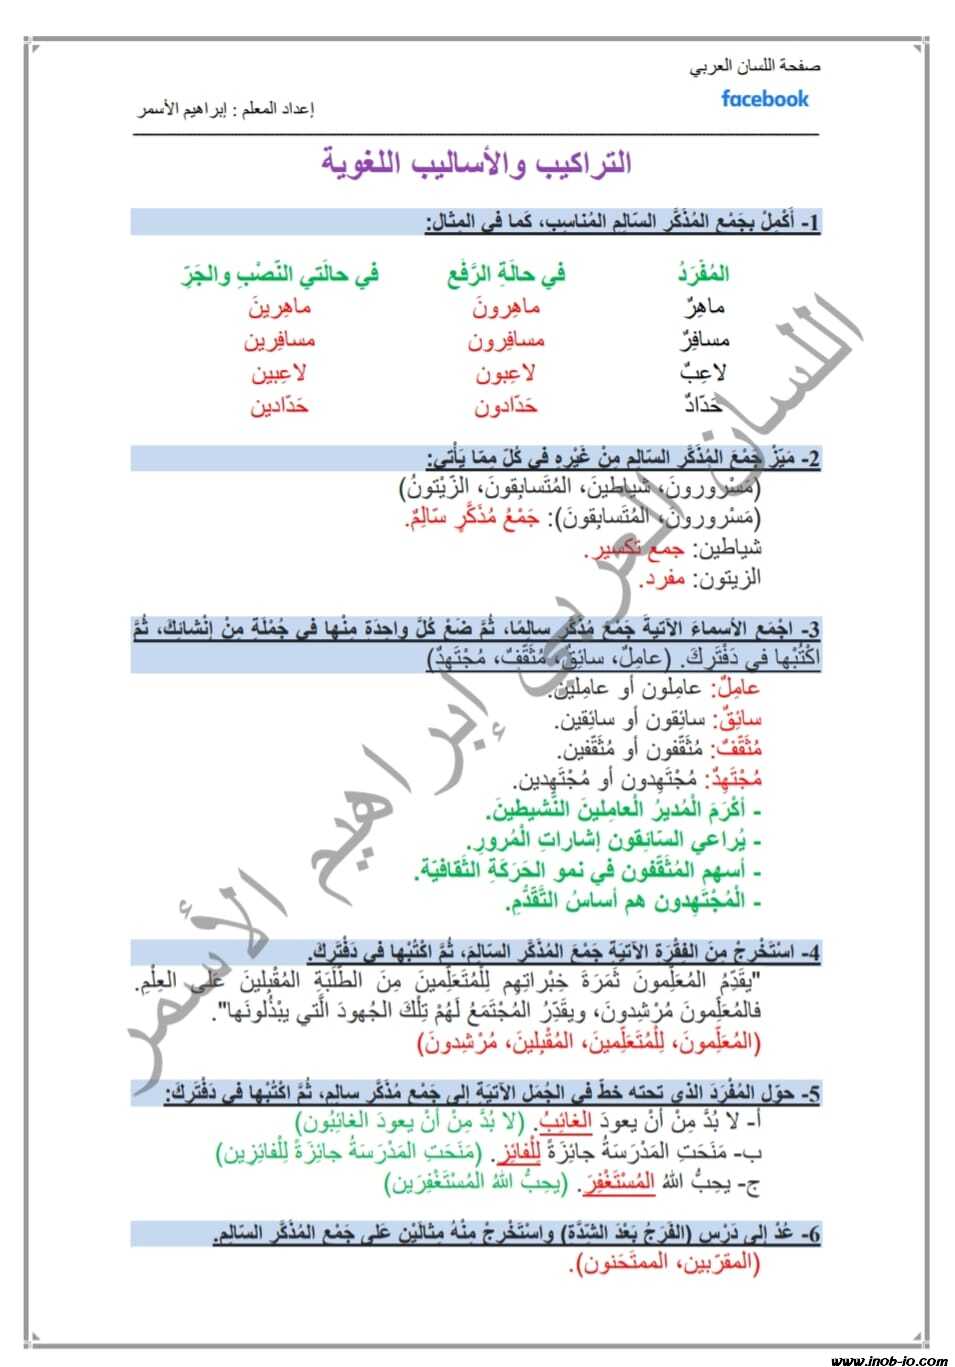 صفحة اللسان العربي
facebook
إعداد المعلم : إبراهيم الأسمر
التراكيب والأساليب اللغوية
1- أَكْمِلْ بِجَمْعِ المُذَكَّرِ السّالِمِ المُناسِبِ، كَما في المِثالِ:
المُفْرَدُ في حالَةِ الرَّفْعِ في حالَتي النّصْبِ والجَرِّ
ماهِرٌ ماهِرونَ ماهِرينَ
مسافِرٌ مسافِرون مسافِرين
لاعِبٌ لاعِبون لاعِبين
حَدّادٌ حَدّادون حَدّادين
2- مَيّزْ جَمْعَ المُذَكَّرِ السّالِمِ مِنْ غَيْرِهِ في كُلّ مِمّا يَأْتي:
(مَسْرورونَ، شياطينَ، المُتَسابِقونَ، الزّيْتونُ)
(مَسْرورونَ، المُتَسابِقونَ): جَمْعُ مُذَكَّرٍ سّالِمٌ.
شياطين: جمع تكسير.
الزيتون: مفرد.
3- اجْمَعِ الأسماءَ الآتيةَ جَمْعَ مُذَكَّرٍ سالِمًا، ثُمَّ ضَعْ كُلَّ واحِدَةٍ مِنْها في جُمْلَةٍ مِنْ إنْشائِكَ، ثُمَّ
اكْتُبْها في دَفْتَرِكَ. (عامِلٌ، سائِقٌ، مُثَقَّفٌ، مُجْتَهِدٌ)
عامِلٌ: عامِلون أو عامِلين.
سائِقٌ: سائِقون أو سائِقين.
مُثَقَّفٌ: مُثَقّفون أو مُثَقّفين.
مُجْتَهِدٌ: مُجْتَهِدون أو مُجْتَهِدين.
- أكْرَمَ الْمُديرُ الْعامِلينَ النَّشيطينَ.
- يُراعي السّائِقون إشاراتِ الْمُرورِ.
- أسهم المُثَقّفون في نمو الحَرَكَةِ الثَّقافيّة.
- الْمُجْتَهِدون هم أساسُ التَّقَدُّمِ.
4- اسْتَخْرِجْ مِنَ الفِقْرَةِ الآتيَةِ جَمْعَ المُذَكّرِ السّالِمَ، ثُمَّ اكْتُبْها في دَفْتَرِكَ.
"يقَدِّمُ المُعَلِّمونَ ثَمَرَةَ خِبْراتِهِم لِلْمُتَعَلِّمينَ مِنَ الطَّلَبَةِ المُقْبِلينَ عَلى العِلْمِ.
فالمُعَلِّمونَ مُرْشِدونَ، ويقَدِّرُ المُجْتَمَعُ لَهُمْ تِلْكَ الجُهودَ الَّتي يبْذُلونَها".
(المُعَلِّمونَ، لِلْمُتَعَلِّمينَ، المُقْبِلينَ، مُرْشِدونَ)
5- حوّل المُفْرَدَ الذي تحته خطّ في الجُمَلِ الآتيَةِ إلى جَمْعِ مُذَكَّرٍ سالِمٍ، ثُمَّ اكْتُبْها في دَفْتَرِكَ:
أ- لا بُدَّ مِنْ أنْ يعودَ الغائِبُ. (لا بُدَّ مِنْ أنْ يعودَ الغائِبُون)
ب- مَنَحَتِ المَدْرَسَةُ جائِزَةً لِلْفائِزِ. (مَنَحَتِ المَدْرَسَةُ جائِزَةً لِلْفائِزِين)
ج- يحِبُّ اللهُ المُسْتَغْفِرَ. (يحِبُّ اللهُ المُسْتَغْفِرَين)
6- عُدْ إلى دَرْسِ (الفَرَجُ بَعْدَ الشِّدَّةِ) واسْتَخْرِجْ مِنْهُ مِثالَيْنِ عَلى جَمْعِ المُذَكّرِ السّالِمِ.
(المقرّبين، الممتَحَنون).
اللسان العربي إبراهيم الأسمر
www.inob-jo.com